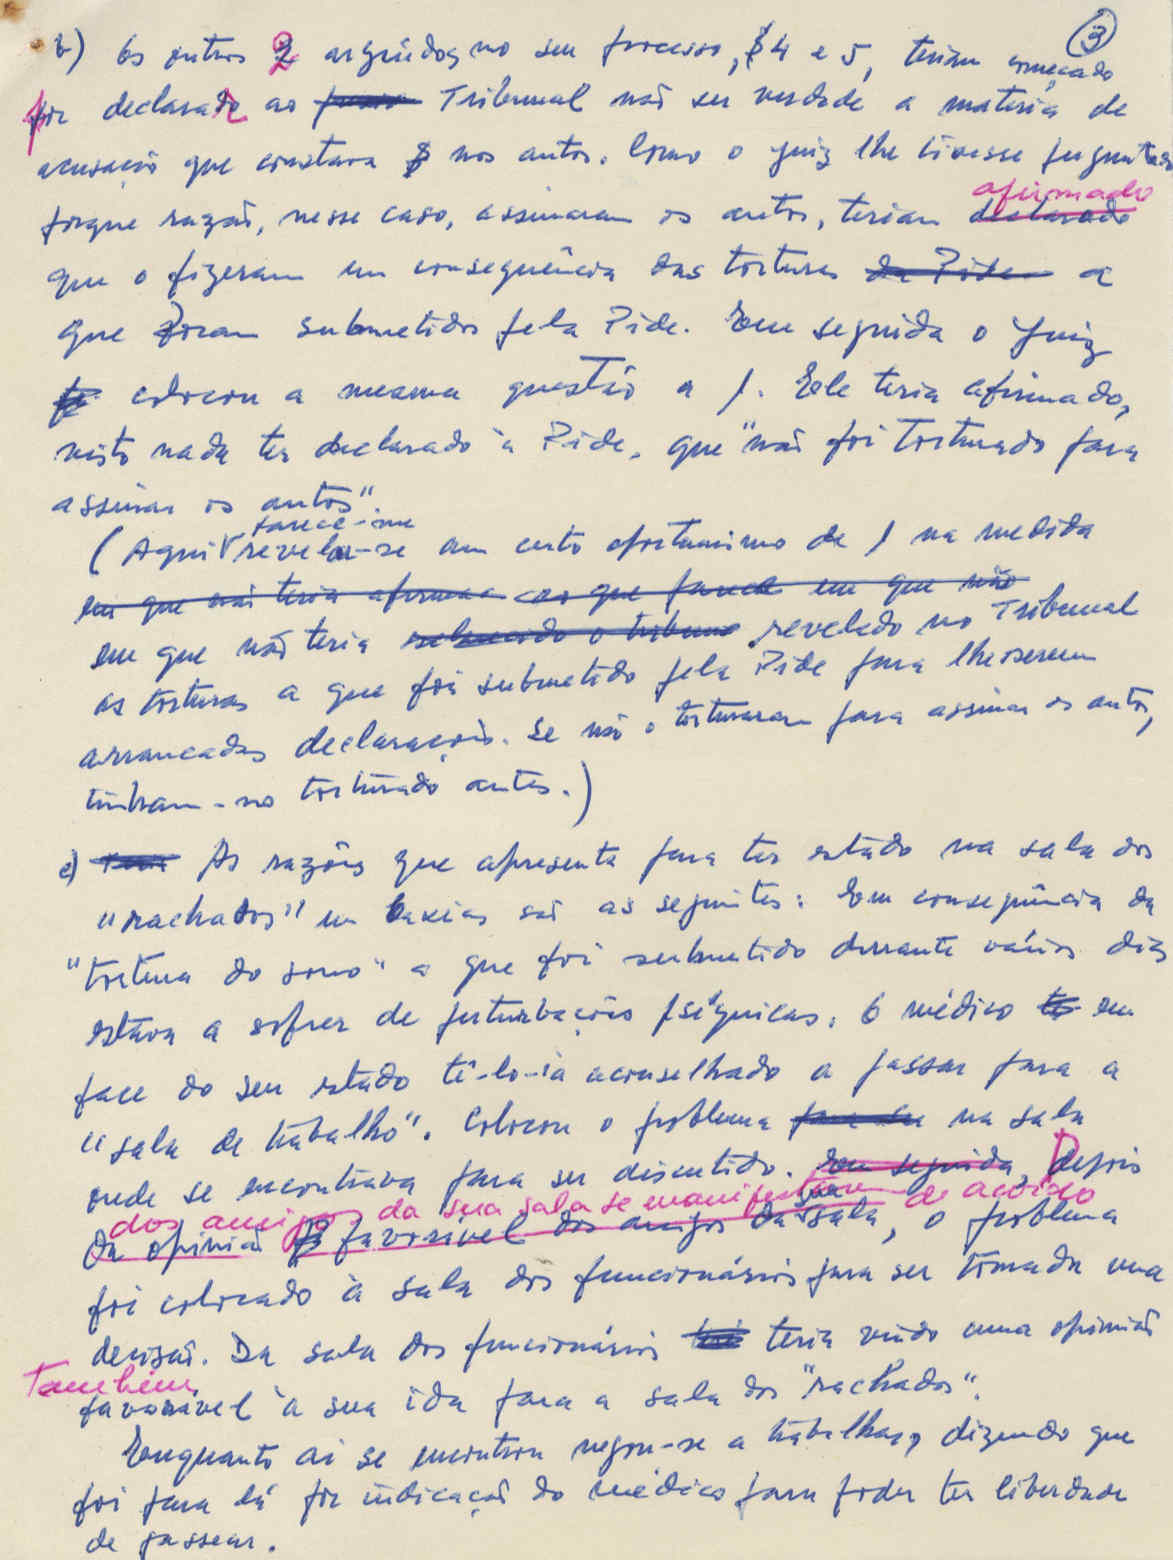 3
b) Os outros 2 arguidos no seu processo, 4 e 5, teriam começado
por declarar ao Tribunal não ser verdade a matéria de
acusação que constava nos autos. Como o juiz lhe tivesse perguntado
porque razão, nesse caso, assinaram os autos, teriam declarado afirmado
que o fizeram em consequência das torturas da Pide a
que foram submetidos pela Pide. Em seguida o Juiz
colocou a mesma questão a 1. Ele teria afirmado,
visto nada ter declarado à Pide, que "não foi torturado para
assinar os autos".
(Aqui parece-me revelar-se um certo oportunismo de 1 na medida
em que não teria afirmado ao que parece em que não
em que não teria revelado no Tribunal
as torturas a que foi submetido pela Pide para lhe serem
arrancadas declarações. Se não o torturaram para assinar os autos,
tinham-no torturado antes.)
c) As razões que apresenta para ter estado na sala dos
"rachados" em Caxias são as seguintes: Em consequência da
"tortura do sono" a que foi submetido durante vários dias
estava a sofrer de perturbações psíquicas. O médico em
face do seu estado tê-lo-ia aconselhado a passar para a
"sala de trabalho". Colocou o problema na sala
onde se encontrava para ser discutido. Em seguida, Depois
dos amigos da sua sala se manifestarem de acordo
da opinião favorável dos amigos da sua sala, o problema
foi colocado à sala dos funcionários para ser tomada uma
decisão. Da sala dos funcionários teria vindo uma opinião
também
favorável à sua ida para a sala dos "rachados".
Enquanto aí se encontrou negou-se a trabalhar, dizendo que
foi para lá por indicação do médico para poder ter liberdade
de passear.